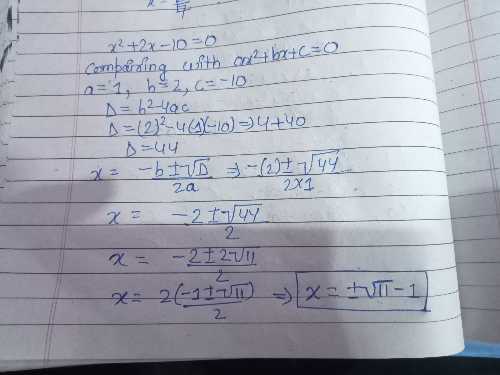 x²+2x-10=0
Comparing with ax²+bx+c=0
a=1, b=2, c=-10
D=b²-4ac
D=(2)²-4(1)(-10)⇒4+40
D=44
x= -b±√D/2a ⇒ -(2)±√44/2×1
x= -2±√44/2
x= -2±2√11/2
x= 2(-1±√11)/2 ⇒ x=±√11-1